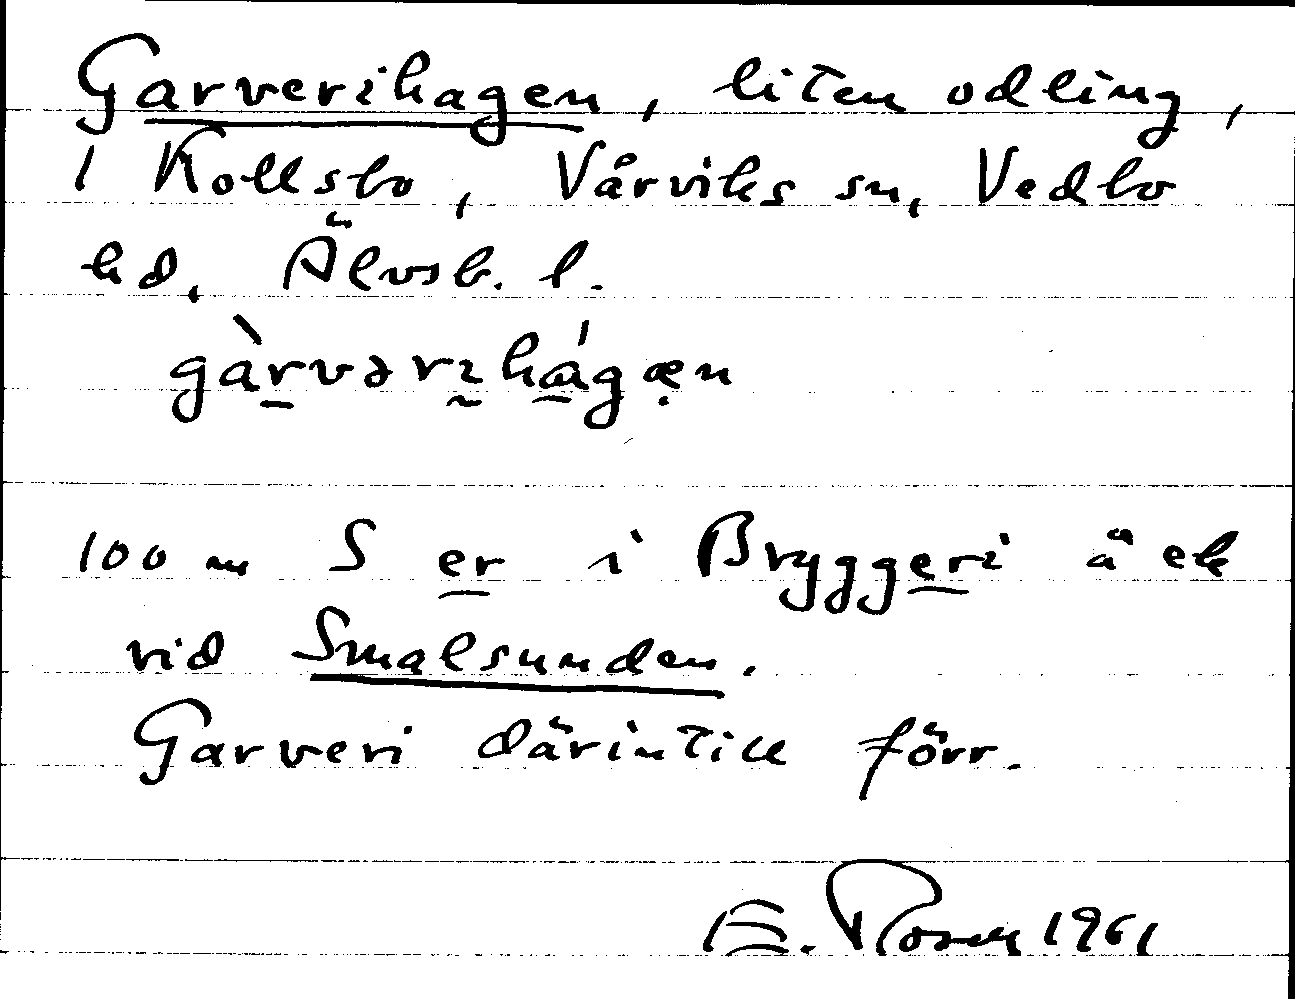 Garverihagen, liten odling,
i Kollsbo, Vårviks sn, Vedbo
hd, Älvsb. l.
gàrvərɪhágæn
100 m S er i Bryggeri å ek
vid Smalsunden.
Garveri därintill förr.
E. Rosen 1961